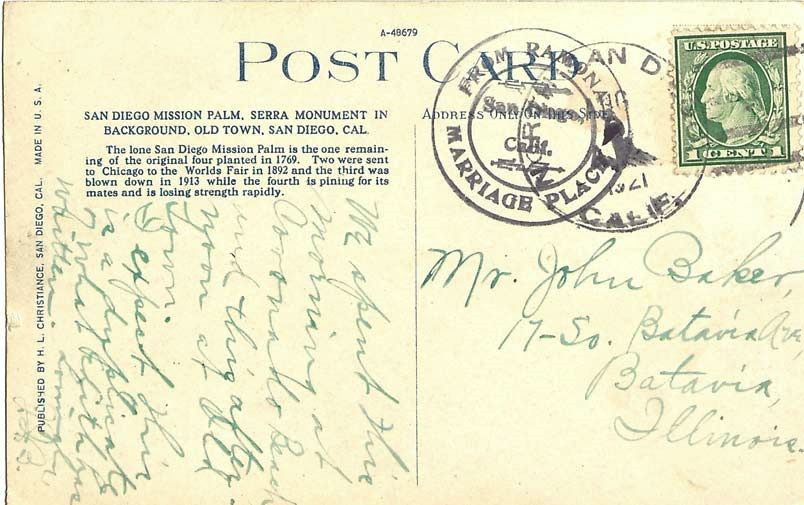 A-48679
POST CARD
SAN DIEGO MISSION PALM, SERRA MONUMENT IN
BACKGROUND, OLD TOWN, SAN DIEGO, CAL.
The lone San Diego Mission Palm is the one remain-
ing of the original four planted in 1769. Two were sent
to Chicago to the Worlds Fair in 1892 and the third was
blown down in 1913 while the fourth is pining for its
mates and is losing strength rapidly.
PUBLISHED BY H. L. CHRISTIANCE, SAN DIEGO, CAL. MADE IN U. S. A.
We spent this
morning at
Coronado Beach
and this after-
noon at Old
Town.
I expect this
is a duplicate
of what Edith has
written.
ADDRESS ONLY ON THIS SIDE
FROM RAMONA'S
MARRIAGE PLACE
San Diego
Calif.
AN D
1921
CALIF.
U.S. POSTAGE
1 CENT 1
Mr. John Baker,
17-So. Batavia Ave,
Batavia,
Illinois.